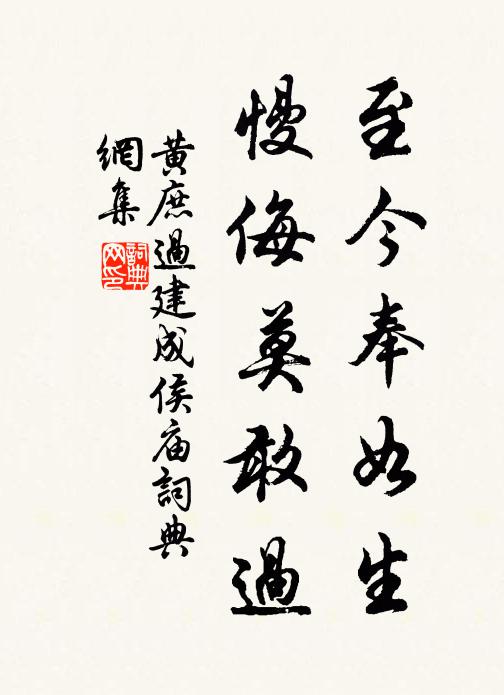 至今奉如生
慢侮莫敢過
黄庶過建成侯庙詞典
網集
詞典网印